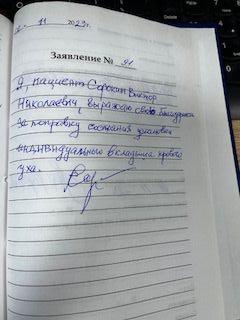 11 2023 г.
Заявление № 91
Я пациент Сорокин Виктор
Николаевич выражаю свою благодарность
за поправку состояния установки
индивидуального вкладыша правого
уха.